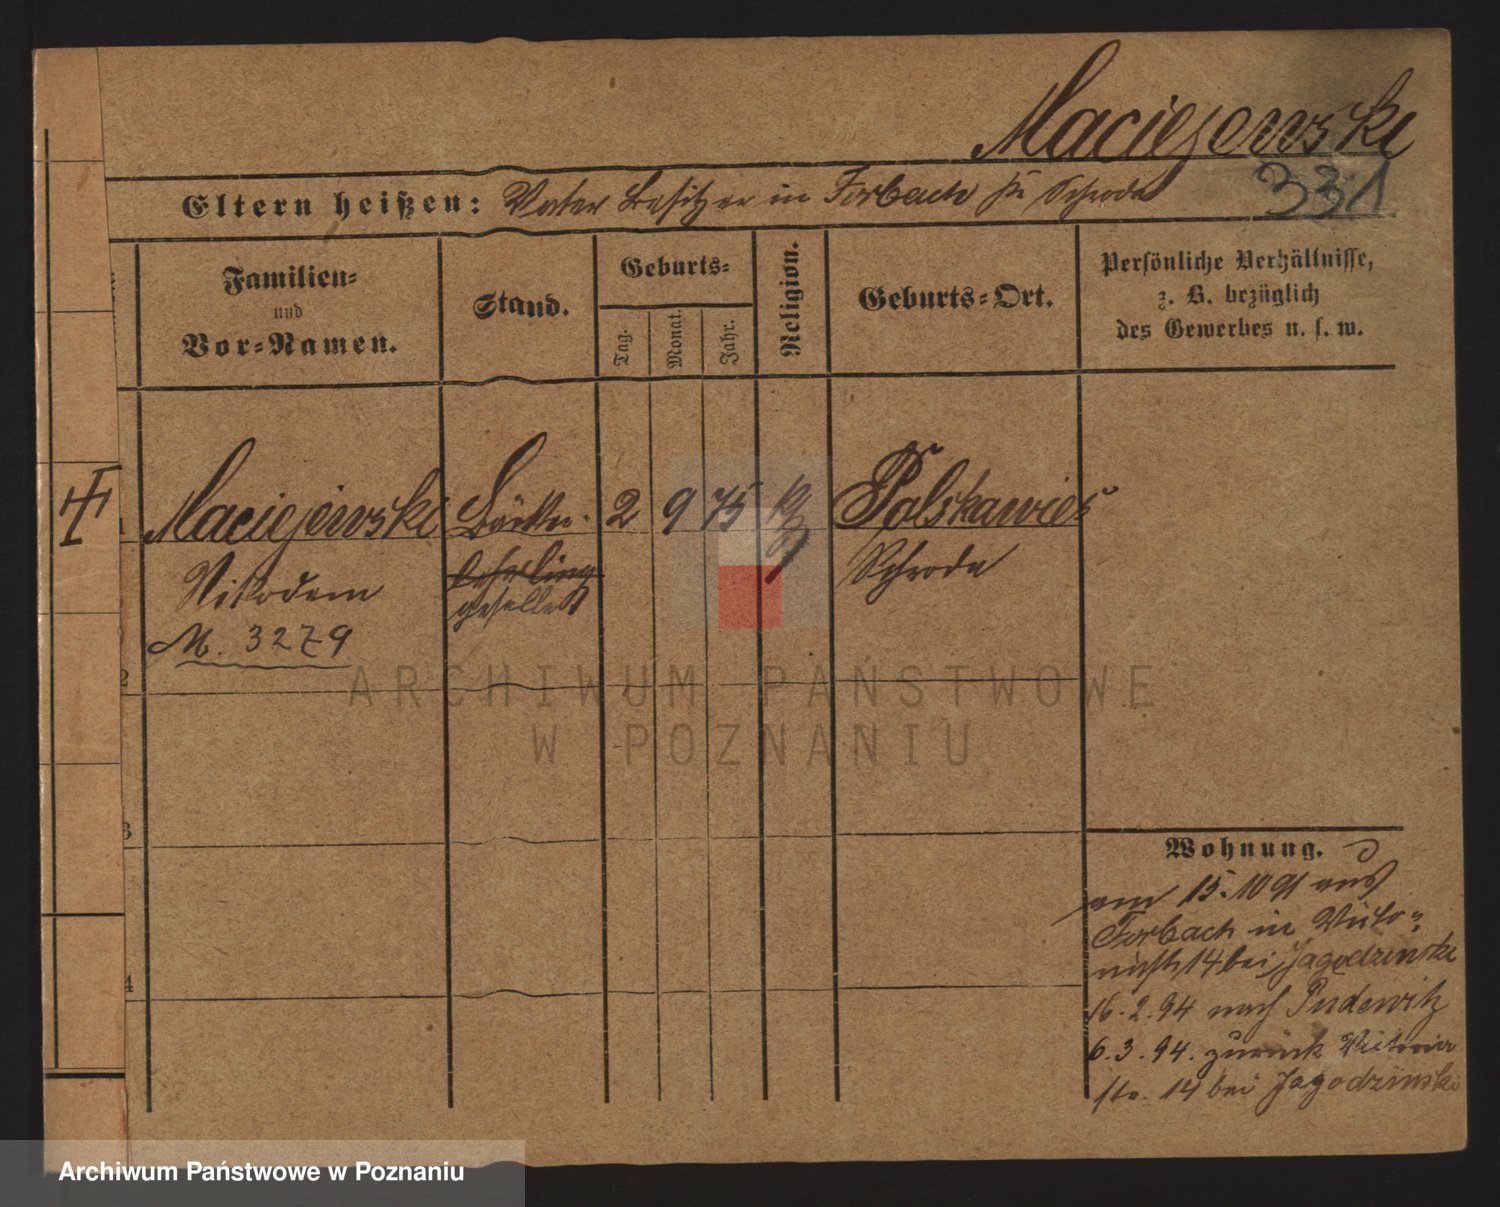 Maciejewski
331
Eltern heißen: Vater Besitzer in Forbach Kr Schroda
Familien-
und
Vor-Namen.
Stand.
Geburts-
Tag.
Monat.
Jahr.
Religion.
Geburts-Ort.
Persönliche Verhältnisse,
z. B. bezüglich
des Gewerbes u. s. w.
1
Maciejewski Bäcker. 2 9 75 Polskawies
Nikodem lehrling Schroda
geselle
M. 3279
2
3
4
Wohnung.
am 15.10 91 aus
Forbach in Victo-
riastr 14 bei Jagodzinski
16.2.94 nach Pudewitz
6.3.94. zurück Victoria
str. 14 bei Jagodzinski
ARCHIWUM PAŃSTWOWE
W POZNANIU
Archiwum Państwowe w Poznaniu